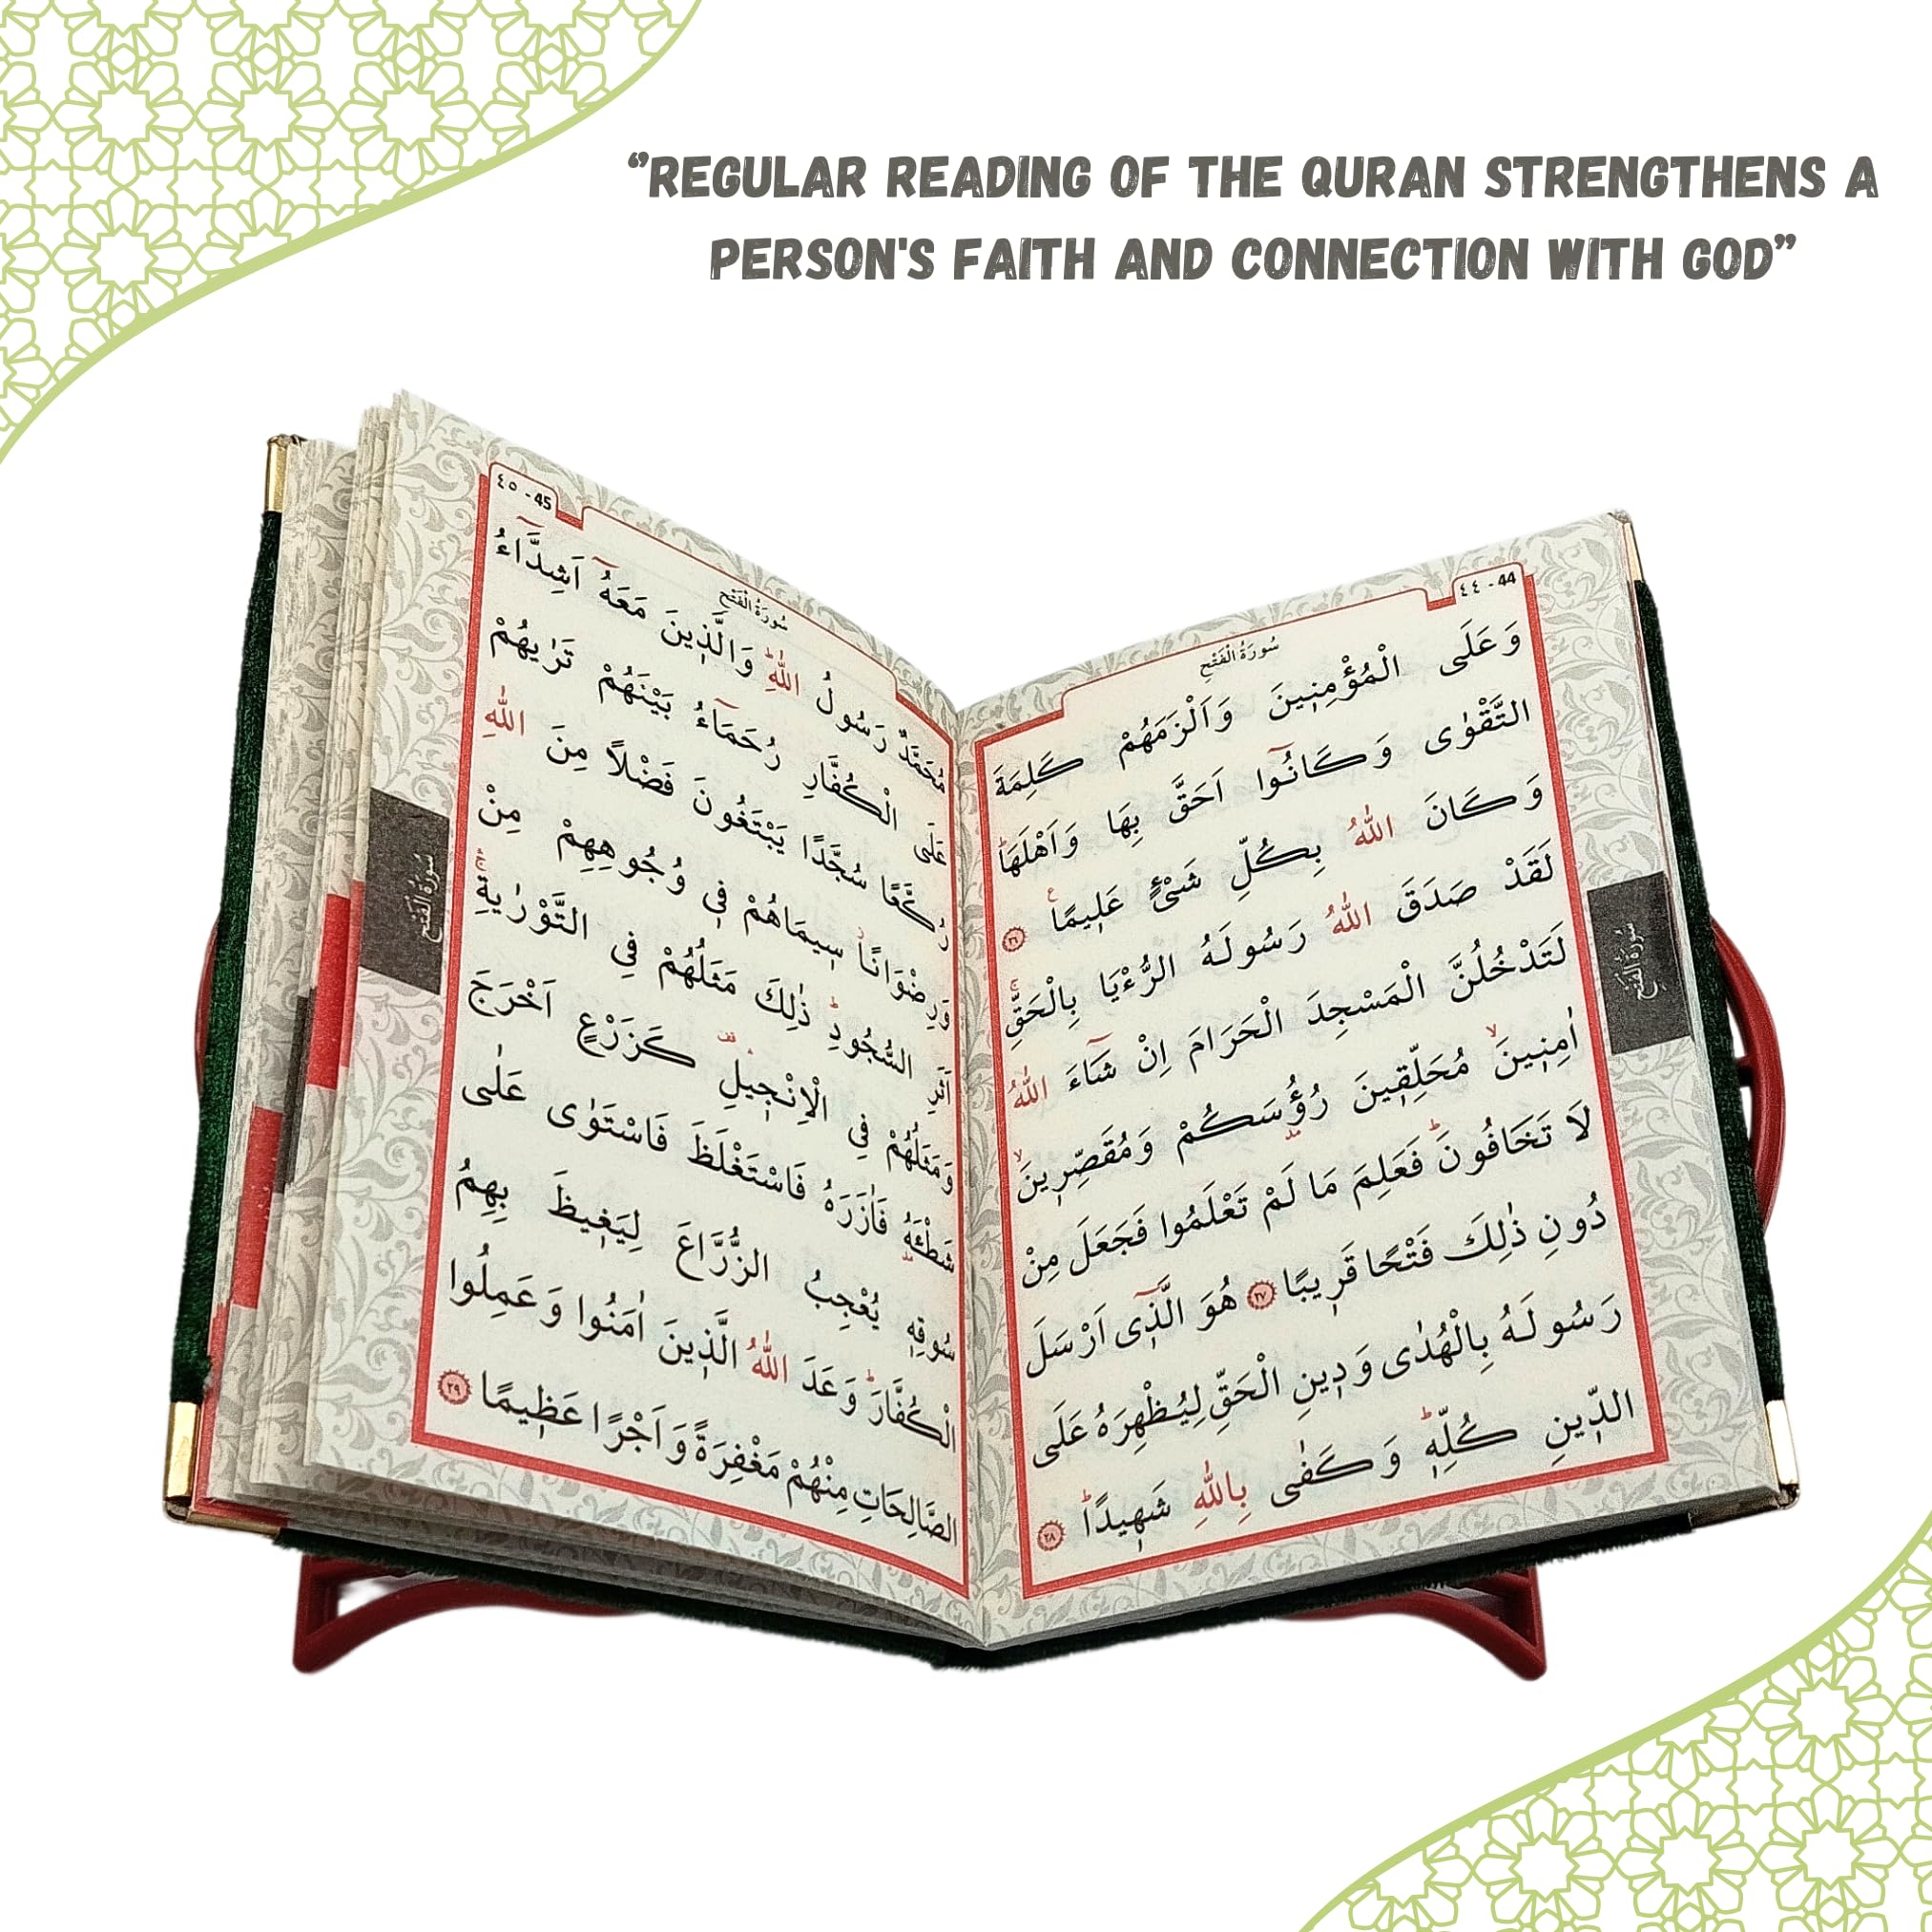 ‘’REGULAR READING OF THE QURAN STRENGTHENS A
PERSON'S FAITH AND CONNECTION WITH GOD’’
٤٤ - 44
سُورَةُ الْفَتْحِ
وَعَلَى الْمُؤْمِنٖينَ وَاَلْزَمَهُمْ كَلِمَةَ
التَّقْوٰى وَكَانُٓوا اَحَقَّ بِهَا وَاَهْلَهَاؕ
وَكَانَ اللّٰهُ بِكُلِّ شَیْءٍ عَلٖيمًا ࣖ ٢٦
لَقَدْ صَدَقَ اللّٰهُ رَسُولَهُ الرُّءْيَا بِالْحَقِّۚ
لَتَدْخُلُنَّ الْمَسْجِدَ الْحَرَامَ اِنْ شَٓاءَ اللّٰهُ
اٰمِنٖينَۙ مُحَلِّقٖينَ رُؤُسَكُمْ وَمُقَصِّرٖينَۙ
لَا تَخَافُونَؕ فَعَلِمَ مَا لَمْ تَعْلَمُوا فَجَعَلَ مِنْ
دُونِ ذٰلِكَ فَتْحًا قَرٖيبًا ٢٧ هُوَ الَّذٖٓى اَرْسَلَ
رَسُولَهُ بِالْهُدٰى وَدٖينِ الْحَقِّ لِيُظْهِرَهُ عَلَى
الدّٖينِ كُلِّهٖؕ وَكَفٰى بِاللّٰهِ شَهٖيدًاؕ ٢٨
سُورَةُ الْفَتْحِ
٤٥ - 45
سُورَةُ الْفَتْحِ
مُحَمَّدٌ رَسُولُ اللّٰهِؕ وَالَّذٖينَ مَعَهُٓ اَشِدَّٓاءُ
عَلَى الْكُفَّارِ رُحَمَٓاءُ بَيْنَهُمْ تَرٰيهُمْ
رُكَّعًا سُجَّدًا يَبْتَغُونَ فَضْلًا مِنَ اللّٰهِ
وَرِضْوَانًاؗ سٖيمَاهُمْ فٖى وُجُوهِهِمْ مِنْ
اَثَرِ السُّجُودِؕ ذٰلِكَ مَثَلُهُمْ فِى التَّوْرٰيةِۚۛ
وَمَثَلُهُمْ فِى الْاِنْجٖيلِۛ كَزَرْعٍ اَخْرَجَ
شَطْـَٔهُ فَاٰزَرَهُ فَاسْتَغْلَظَ فَاسْتَوٰى عَلٰى
سُوقِهٖ يُعْجِبُ الزُّرَّاعَ لِيَغٖيظَ بِهِمُ
الْكُفَّارَؕ وَعَدَ اللّٰهُ الَّذٖينَ اٰمَنُوا وَعَمِلُوا
الصَّالِحَاتِ مِنْهُمْ مَغْفِرَةً وَاَجْرًا عَظٖيمًا ٢٩
سُورَةُ الْفَتْحِ